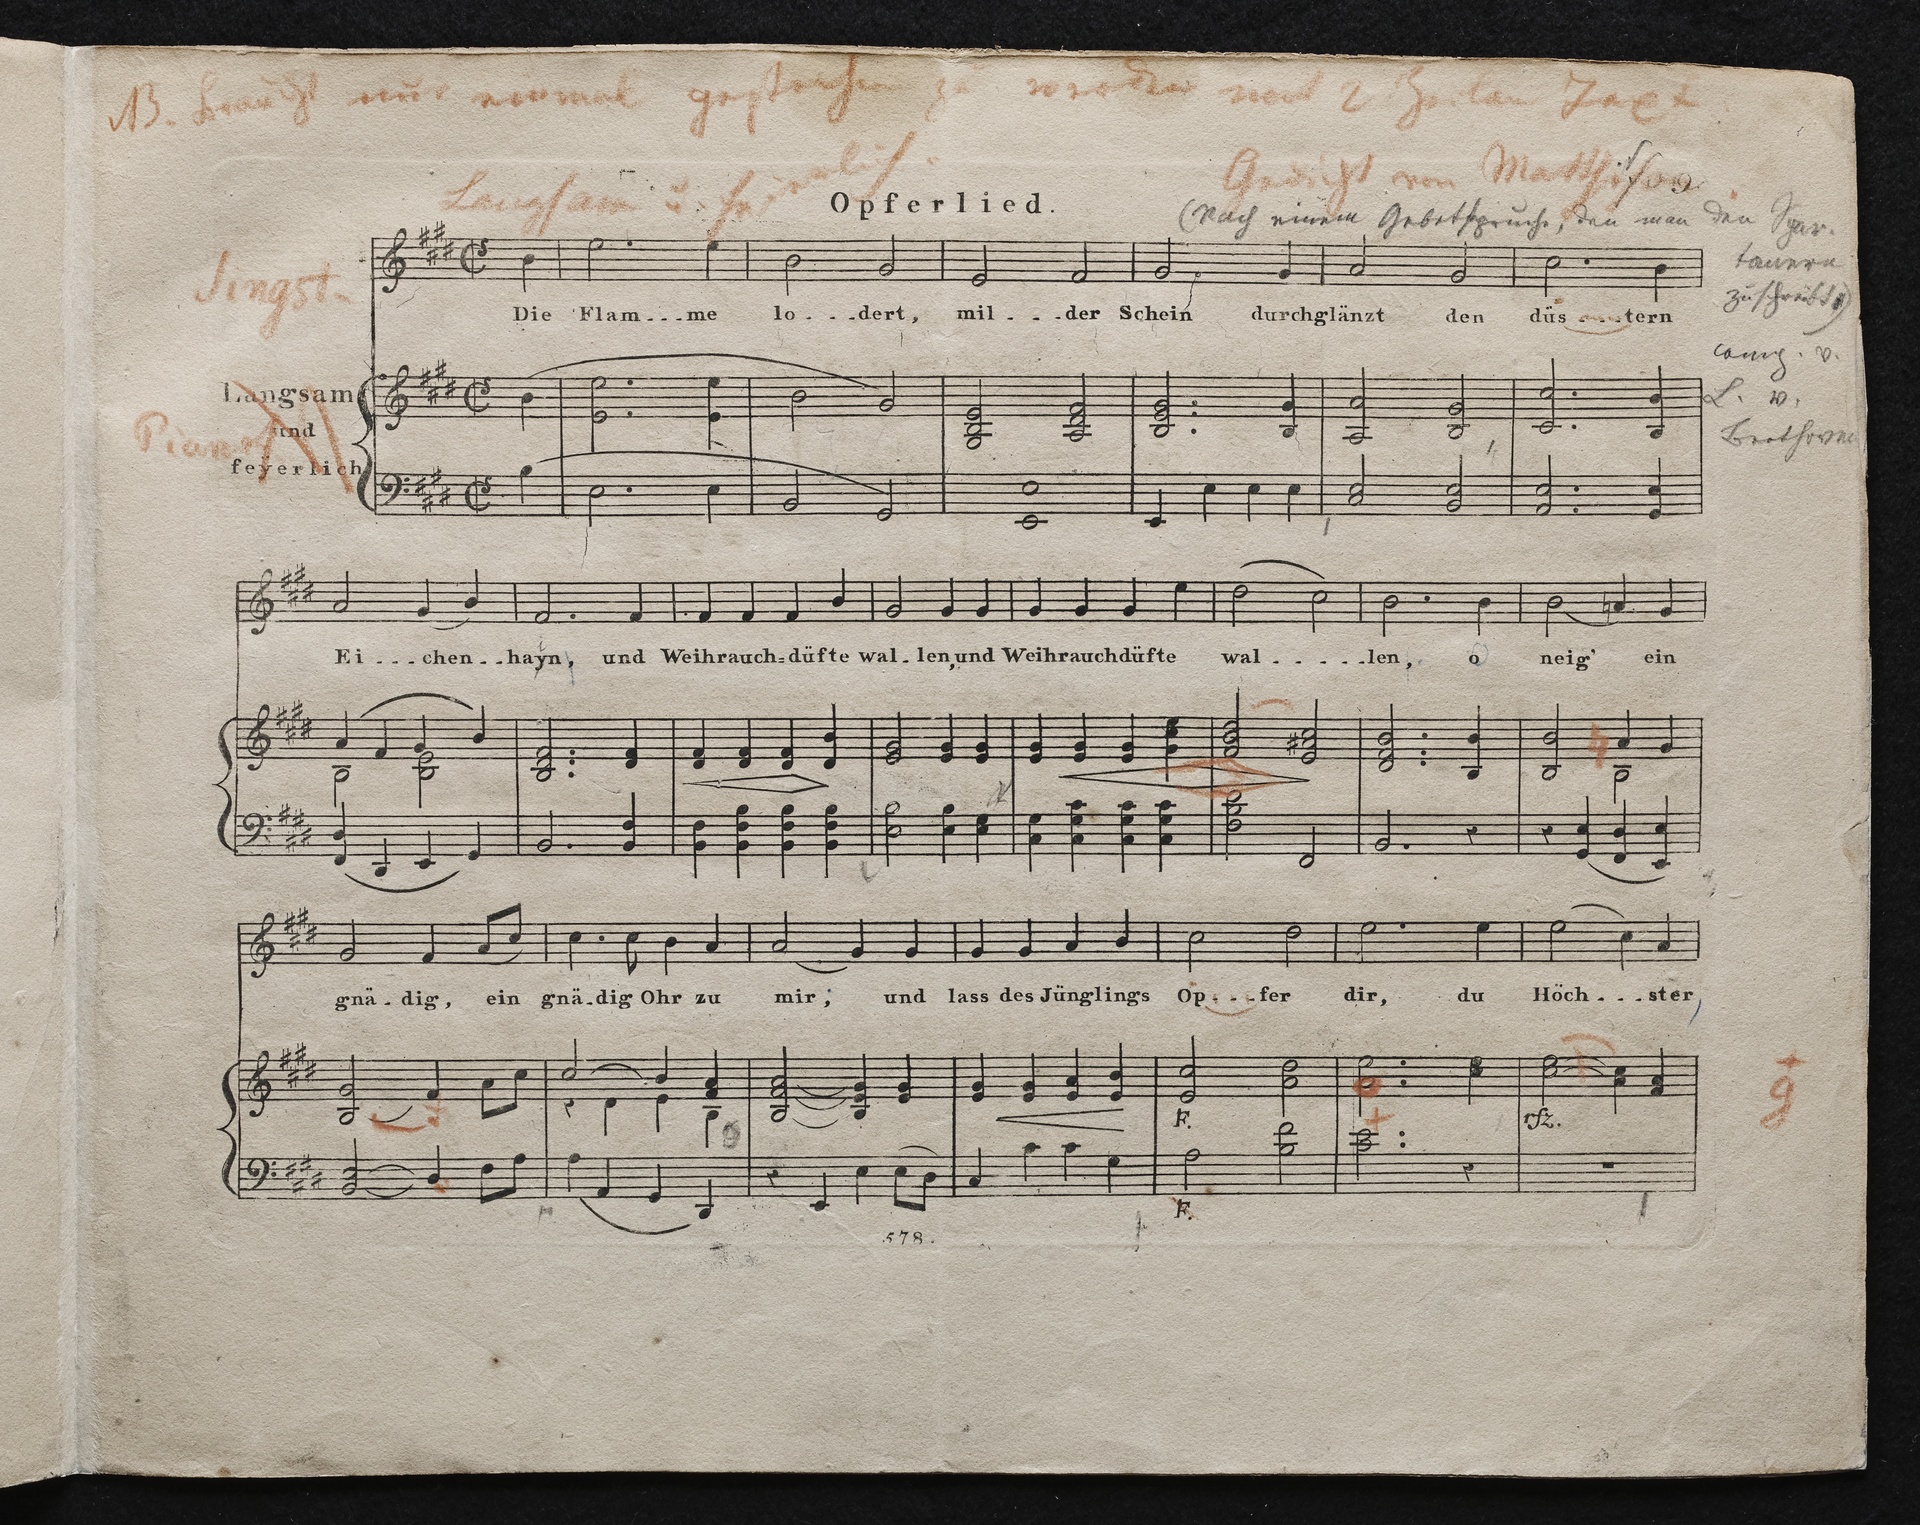 NB. braucht nur einmal gestochen zu werden mit 2 Zeilen Text
Langsam u. feierlich.
Gedicht von Matthisson.
Opferlied.
(Nach einem Gebetspruche, den man den Spar-
tanern
zuschreibt)
comp. v.
L. v.
Beethoven
Singst.
Die Flam...me lo...dert, mil...der Schein durchglänzt den düs...tern
Langsam
und
feyerlich
Piano
Ei...chen..hayn, und Weihrauch=düfte wal.len, und Weihrauchdüfte wal.....len, o neig' ein
gnä.dig, ein gnä.dig Ohr zu mir; und lass des Jünglings Op...fer dir, du Höch...ster,
F.
rfz.
F.
578.